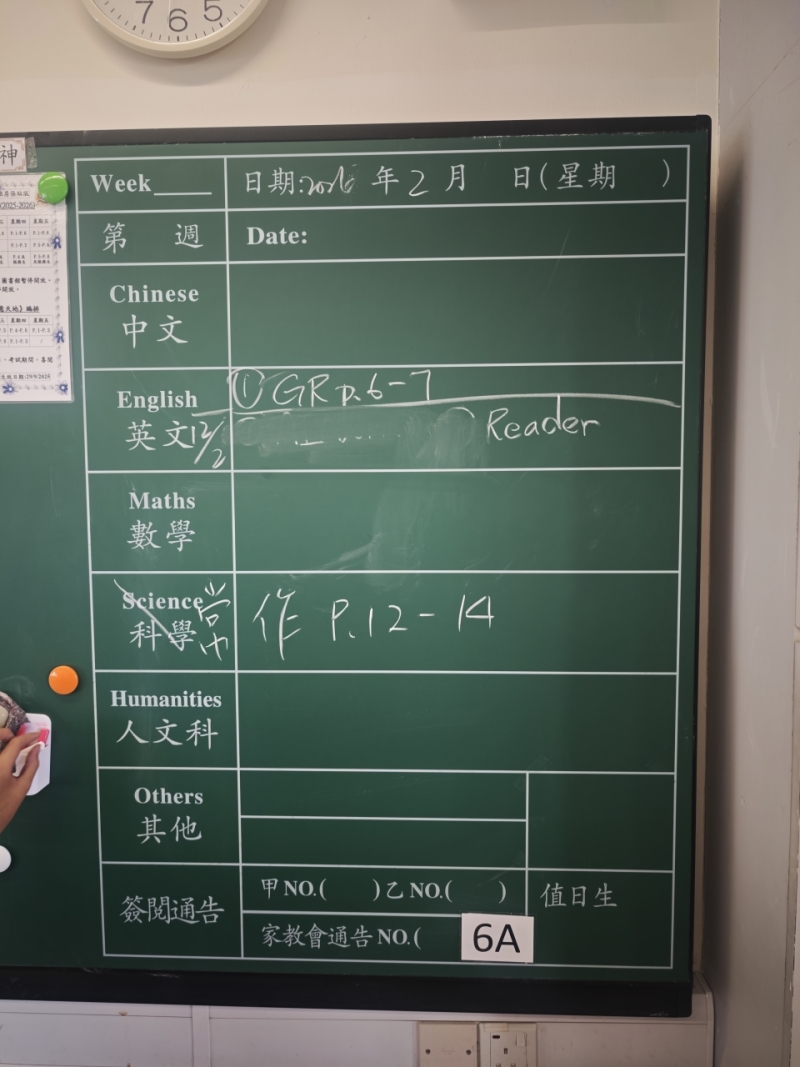 7 6 5
神
(2025-2026)
Week____ 日期:2026 年 2 月 日(星期 )
第 週 Date:
Chinese
中文
English ① GR p.6-7
英文 12/2 Reader
Maths
數學
Science
科學 常 作 P.12-14
Humanities
人文科
Others
其他
簽閱通告 甲NO.( )乙NO.( ) 值日生
家教會通告NO.( 6A